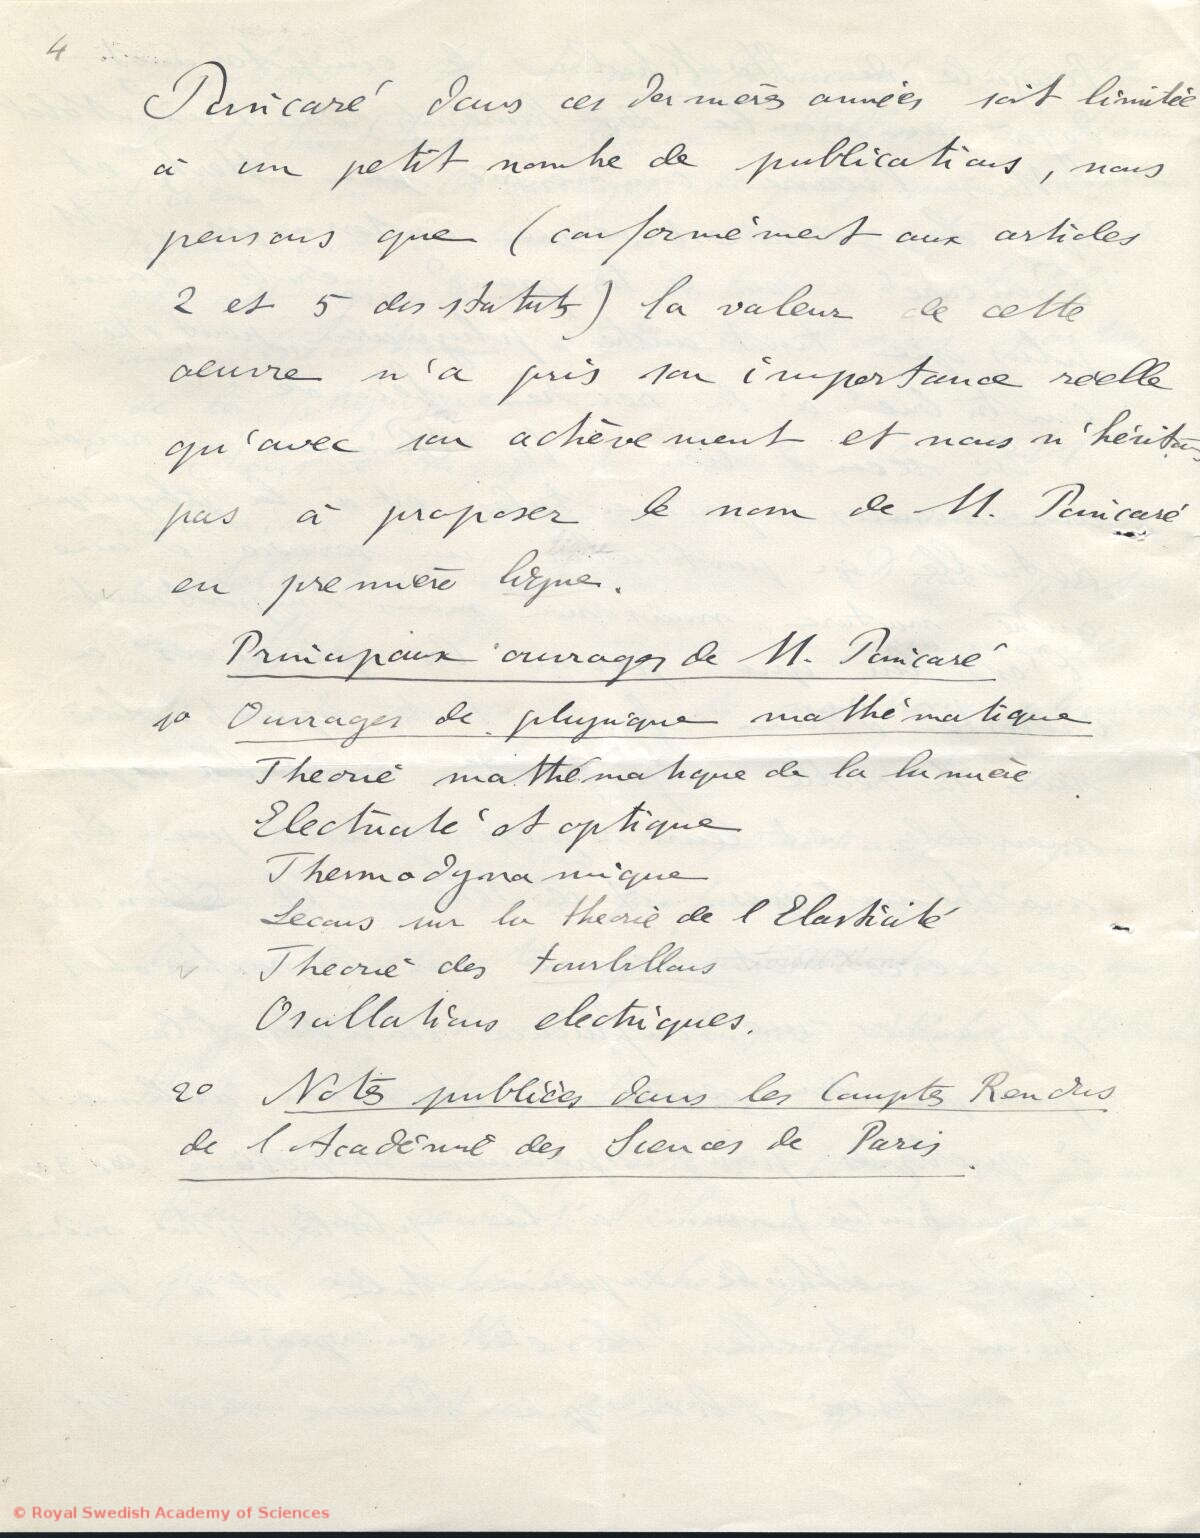 4
Poincaré dans ces dernières années soit limitée
à un petit nombre de publications, nous
pensons que (conformément aux articles
2 et 5 des statuts) la valeur de cette
oeuvre n'a pris son importance réelle
qu'avec son achèvement et nous n'hésitons
pas à proposer le nom de M. Poincaré
en première ligne.
Principaux ouvrages de M. Poincaré
1º Ouvrages de physique mathématique
Theorie mathématique de la lumière
Electricité et optique
Thermodynamique
Lecons sur la theorie de l'Elasticité
Theorie des tourbillons
Oscillations electriques.
2º Notes publiées dans les Comptes Rendus
de l'Académie des Sciences de Paris.
© Royal Swedish Academy of Sciences